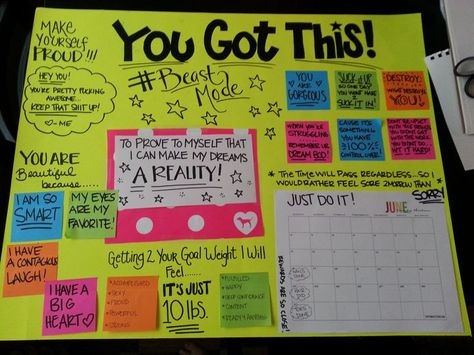 MAKE
YOURSELF
PROUD!!!
YOU GOT THIS!
#BEAST
MODE
HEY YOU!
YOU'RE PRETTY FUCKING
AWESOME...
KEEP THAT SHIT UP!
ME
YOU
ARE
GORGEOUS
SUCK IT UP
SO ONE DAY
YOU WON'T HAVE 2
SUCK IT IN!
DESTROY
WHAT DESTROYS
YOU!
WHEN YOU'RE
STRUGGLING
REMEMBER UR
DREAM BOD!
CAUSE IT'S
SOMETHING
YOU HAVE
100%
CONTROL OVER!
DON'T REGRET
DIDN'T GET
WITH THE WORK
YOU DIDN'T
DO.
TO PROVE TO MYSELF THAT
I CAN MAKE MY DREAMS
A REALITY!
YOU ARE
Beautiful
because......
I AM SO
SMART
MY EYES
ARE MY
FAVORITE!
I HAVE A
CONTAGIOUS
LAUGH!
I HAVE A
BIG
HEART
* THE TIME WILL PASS REGARDLESS...SO I
WOULD RATHER FEEL SORE 2MORROW THAN
SORRY
JUST DO IT!
JUNE
Getting 2 Your Goal Weight I Will
Feel......
ACCOMPLISHED
SEXY
PROUD
POWERFUL
STRONG
IT'S JUST
10 lbs.
FULFILLED
HAPPY
SELF CONFIDENCE
CONTENT
READY 4 ANYTHING
REWARDS ARE SO CLOSE!